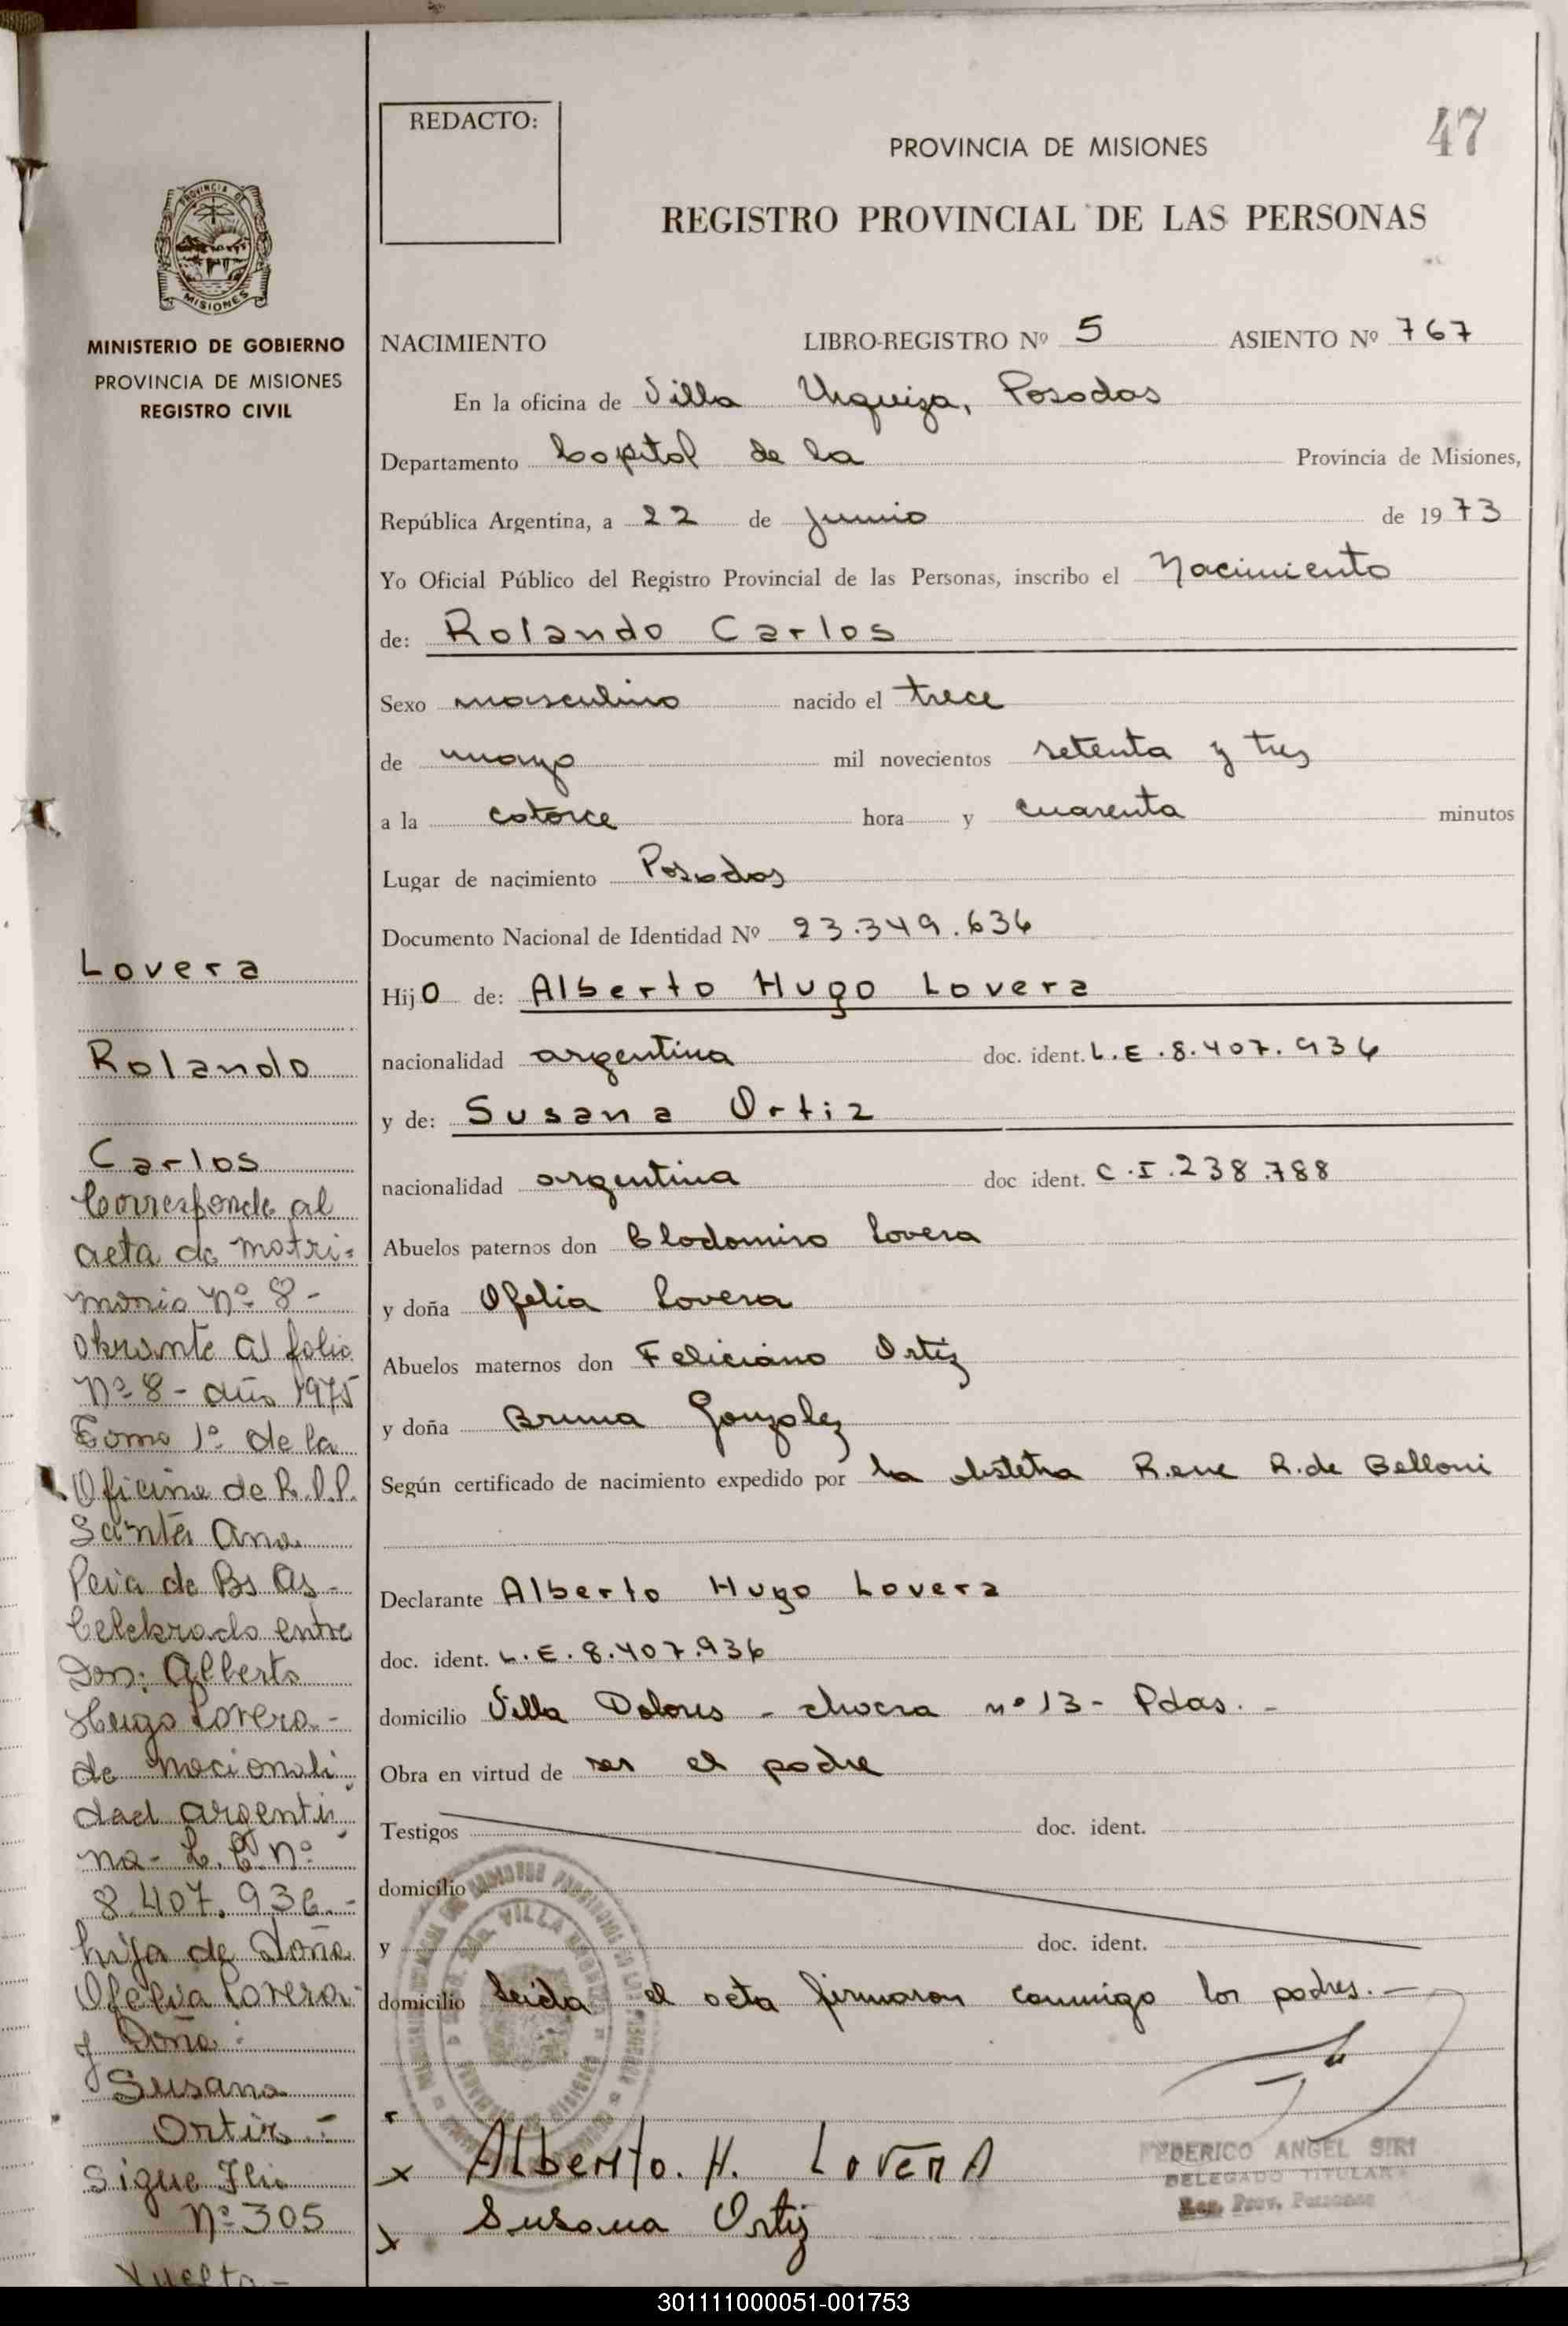 47
REDACTO:
PROVINCIA DE MISIONES
REGISTRO PROVINCIAL DE LAS PERSONAS
PROVINCIA DE
MISIONES
MINISTERIO DE GOBIERNO
PROVINCIA DE MISIONES
REGISTRO CIVIL
NACIMIENTO LIBRO-REGISTRO Nº 5 ASIENTO Nº 767
En la oficina de Villa Urquiza, Posadas
Departamento Capital de la Provincia de Misiones,
República Argentina, a 22 de junio de 1973
Yo Oficial Público del Registro Provincial de las Personas, inscribo el Nacimiento
de: Rolando Carlos
Sexo masculino nacido el trece
de mayo mil novecientos setenta y tres
a la catorce hora y cuarenta minutos
Lugar de nacimiento Posadas
Documento Nacional de Identidad Nº 23.349.636
Hijo de: Alberto Hugo Lovera
nacionalidad argentina doc. ident. L.E.8.407.936
y de: Susana Ortiz
nacionalidad argentina doc ident. C.I.238.788
Abuelos paternos don Clodomiro Lovera
y doña Ofelia Lovera
Abuelos maternos don Feliciano Ortiz
y doña Bruna Gonzalez
Según certificado de nacimiento expedido por la obstetra Rene R. de Belloni
Declarante Alberto Hugo Lovera
doc. ident. L.E.8.407.936
domicilio Villa Dolores - chacra nº 13 - Pdas. -
Obra en virtud de ser el padre
Testigos doc. ident.
domicilio
y doc. ident.
domicilio Leida el acta firmaron conmigo los padres. -
x Alberto. H. Lovera
x Susana Ortiz
FEDERICO ANGEL SIRI
DELEGADO TITULAR
Reg. Prov. Personas
VILLA
Lovera
Rolando
Carlos
Corresponde al
acta de matri-
monio Nº 8 -
obrante al folio
Nº 8 - año 1975
Tomo 1º de la
Oficina de R.P.P.
Santa Ana
Pcia de Bs As -
Celebrado entre
Don: Alberto
Hugo Lovera -
de nacionali
dad argenti
na - L.E. nº
8.407.936. -
hijo de Doña
Ofelia Lovera -
y Doña:
Susana
Ortiz. -
Sigue Flio
Nº 305
Vuelta -
301111000051-001753